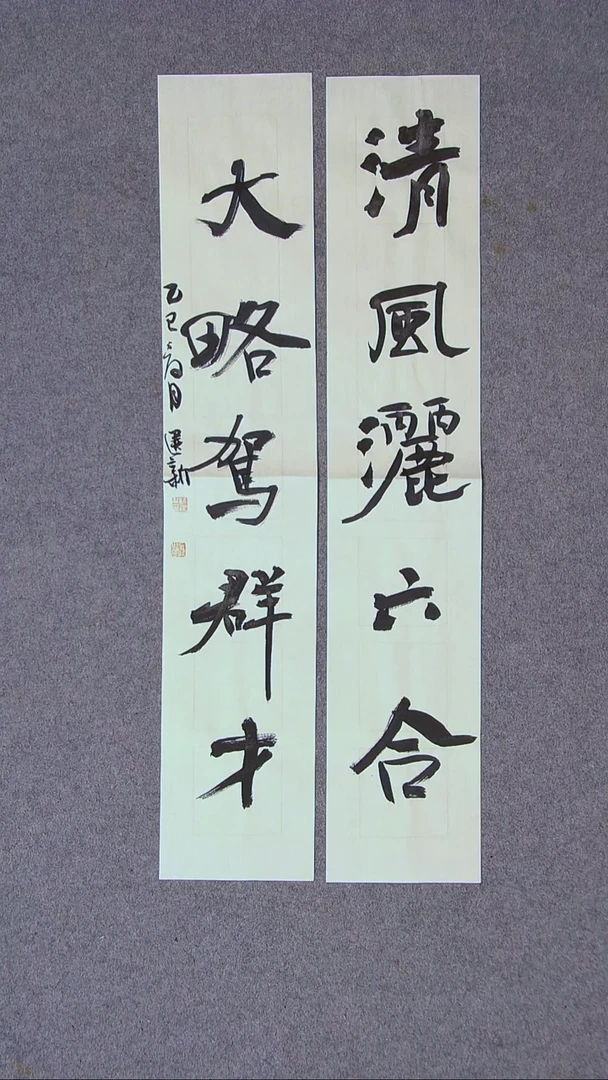 清風灑六合
大略駕群才
乙巳 月 選新